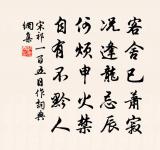 客舍已蕭寂
況逢龍忌辰
何煩申火禁
自有不黔人
宋祁一百五日作詞典
網集